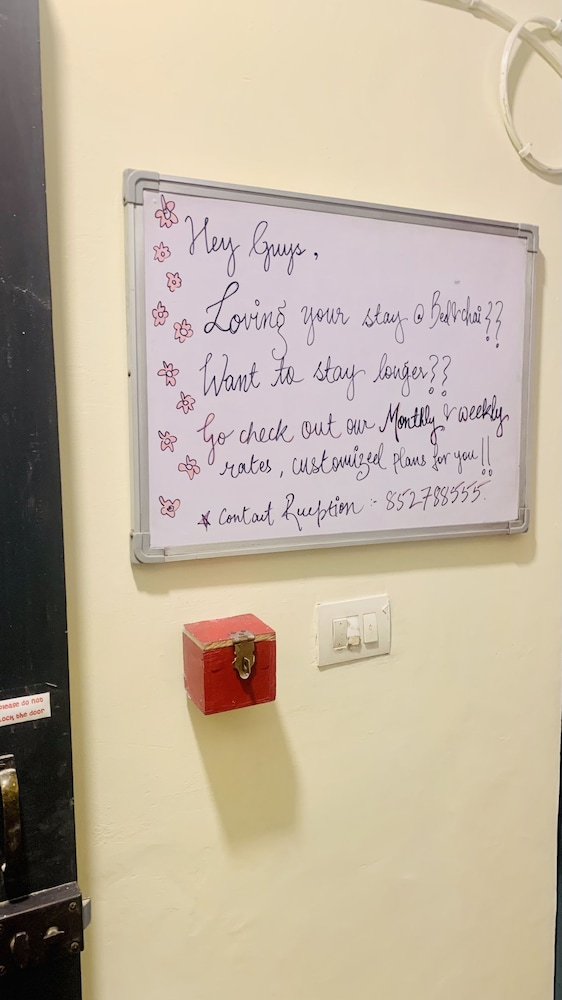 Hey Guys,
Loving your stay @ Bed&chai??
Want to stay longer??
Go check out our Monthly & weekly
rates, customized plans for you!!
* Contact Reception :- 852788555.
please do not
lock the door